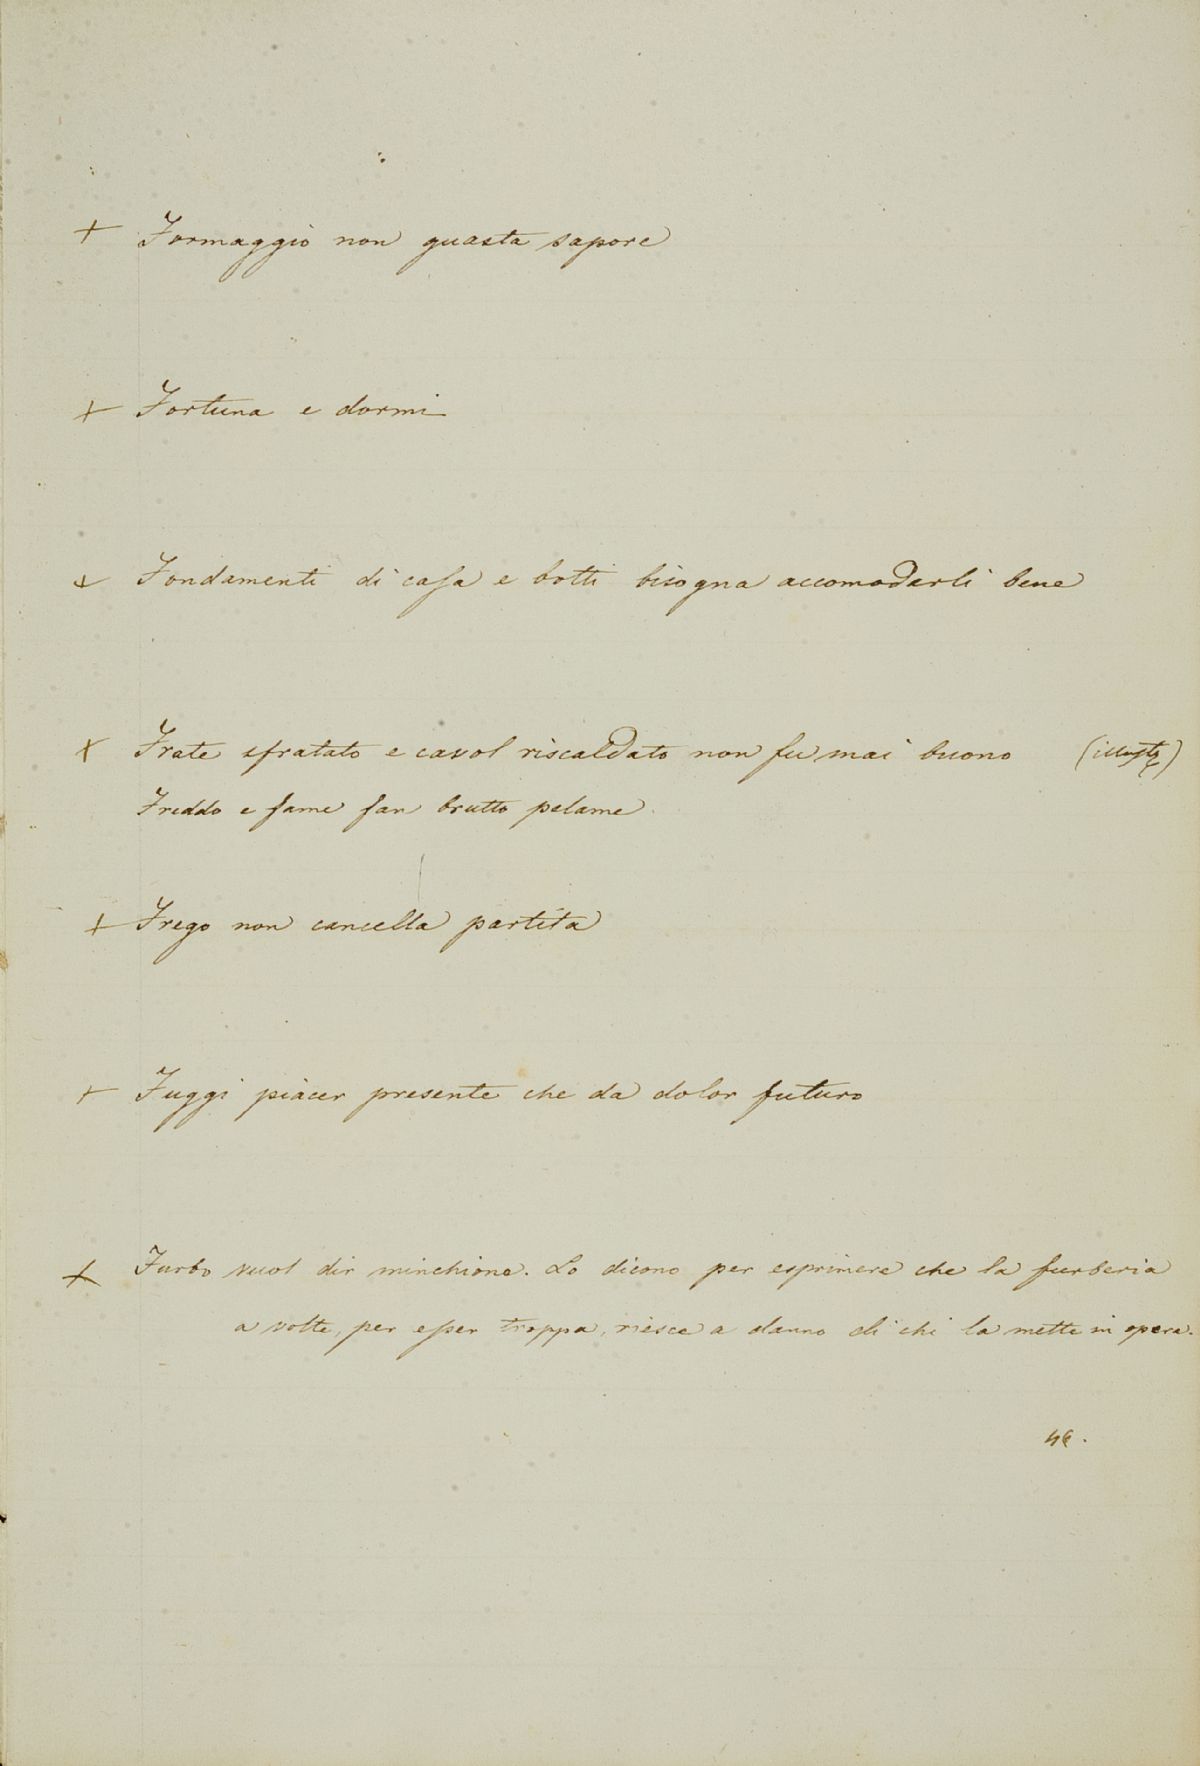 + Formaggio non guasta sapore
+ Fortuna e dormi
+ Fondamenti di casa e botti bisogna accomodarli bene
+ Frate sfratato e cavol riscaldato non fu mai buono
Freddo e fame fan brutto pelame
+ Frego non cancella partita
+ Fuggi piacer presente che da dolor futuro
+ Furbo vuol dir minchione. Lo dicono per esprimere che la furberia
a volte, per esser troppa, riesce a danno di chi la mette in opera.